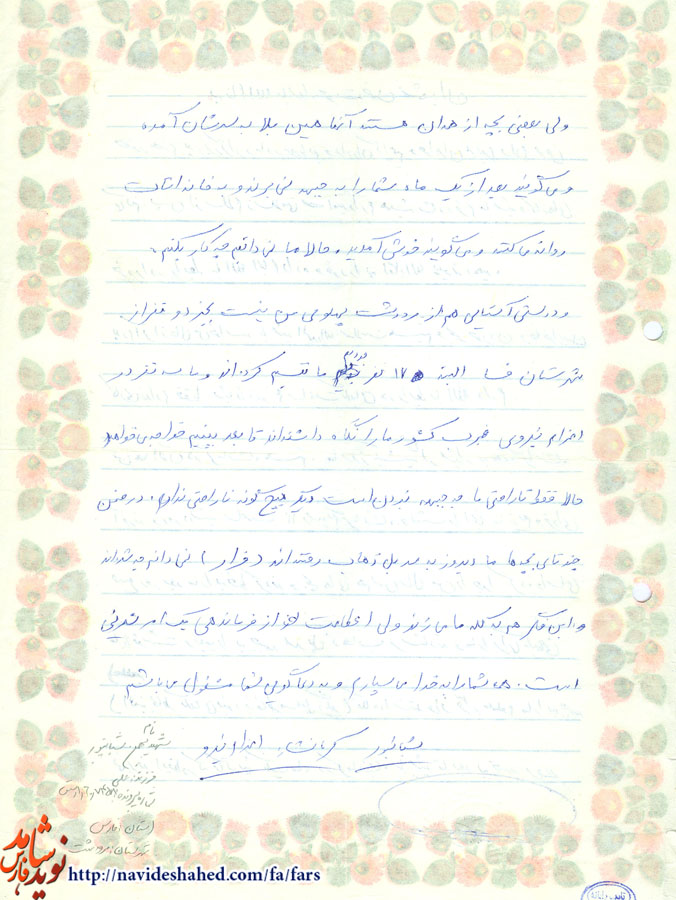 ولی بعضی بچه از همدان هستند آنها همین بلا به سرشان آمده
و می‌گویند بعد از یک ماه شما را به جبهه نمی‌برند و به خانه‌اتان
روانه می‌کنند و می‌گویند خوش آمدید، حالا ما نمی‌دانم چه کار بکنم.
و دوستی آشنایی هم از مرودشت پهلوی من نیست بجز دو نفر از
شهرستان فسا البته ۱۷ نفر بودیم ما تقسیم کرده‌اند و ما سه نفر در
اعزام نیروی غرب کشور ما را نگاه داشته‌اند تا بعد ببینیم خواهد
حالا فقط ناراحتی ما به جبهه نبردن است دیگر هیچ گونه ناراحتی ندارم. در ضمن
چند تای بچه‌ها ما دیروز به سر پل ذهاب رفته‌اند (فرار) نمی‌دانم چه شده‌اند
و این فکر هم به کله ما می‌زند ولی اطاعت از فرماندهی یک امر
است. شما را به خدا می‌سپارم و به دعاگویی شما مشغول می‌باشم
کرمانشاه اعزام نیرو
نام
شهید
فرزند
استان فارس
شهرستان مرودشت
نوید شاهد
فارس
http://navideshahed.com/fa/fars